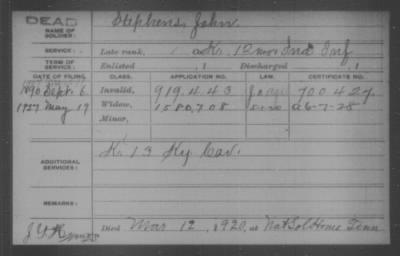 DEAD
NAME OF SOLDIER: Stephens, John.
SERVICE: Late rank, K. 12 mos Ind Inf
TERM OF SERVICE: Enlisted , 1 Discharged , 1
DATE OF FILING. CLASS. APPLICATION NO. LAW. CERTIFICATE NO.
1890 Sept. 6. Invalid, 919.443 700427.
1927 May 19 Widow, 1580,708 a 6-7-28
Minor,
ADDITIONAL SERVICES: K. 13 Ky Cav.
REMARKS:
Died Mar 12, 1920, at Nat Sol Home Tenn